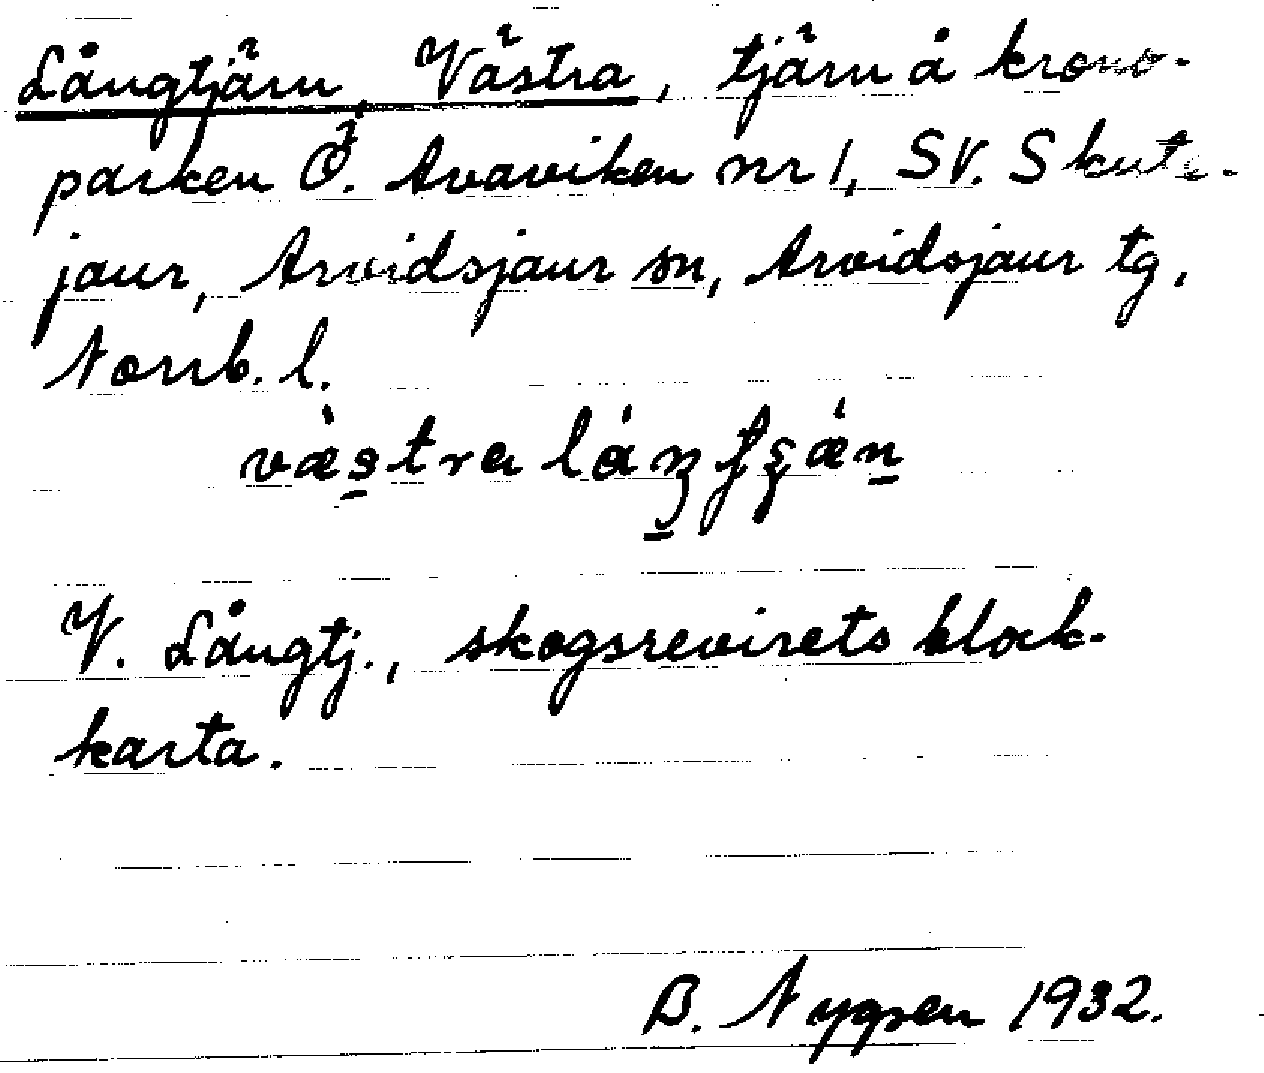 Långtjärn, Västra, tjärn å krono-
parken Ö. Avaviken nr 1, SV. Skute-
jaur, Arvidsjaur sn, Arvidsjaur tg,
Norrb. l.
västra
V. Långtj., skogsrevirets block-
karta.
B. Nygren 1932.